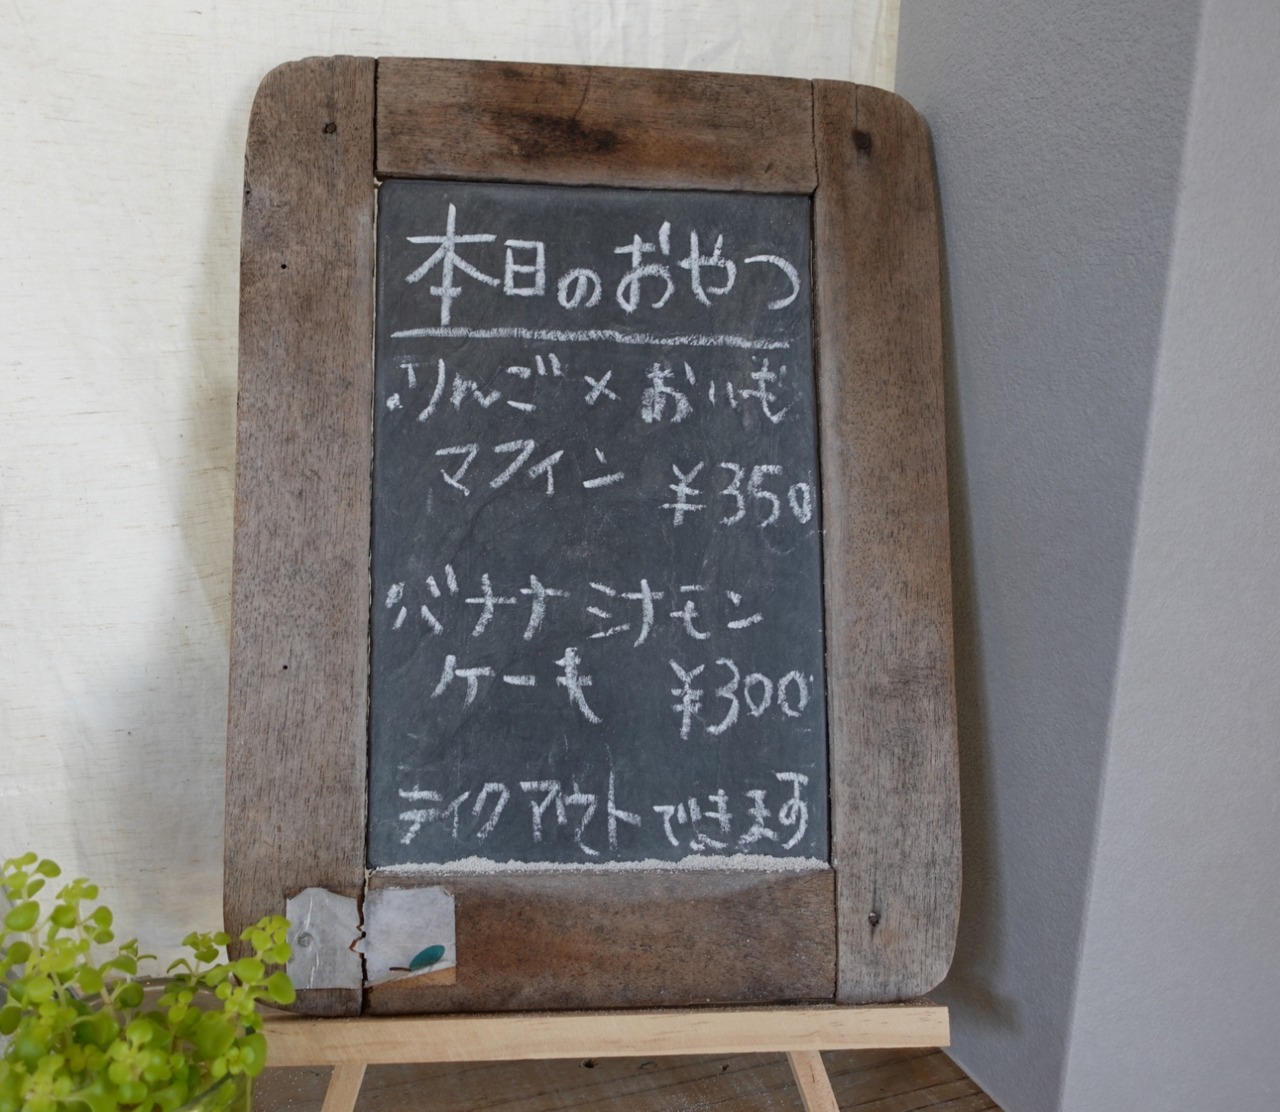 本日のおやつ
りんご×おいも
マフィン ¥350
バナナシナモン
ケーキ ¥300
テイクアウトできます